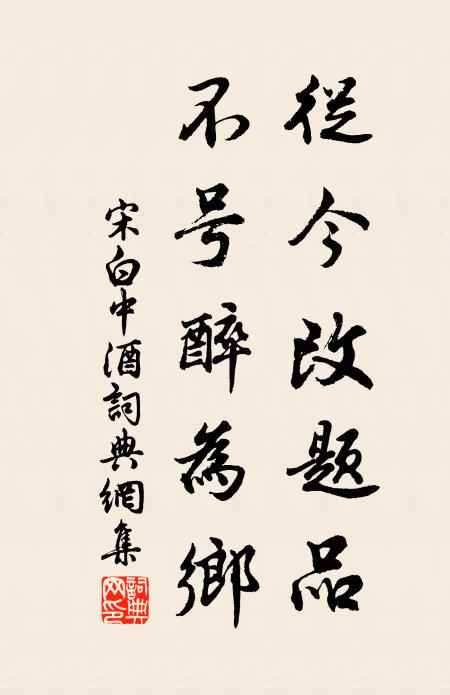 從今改題品
不号醉為鄉
宋白中酒詞典網集
詞典網印